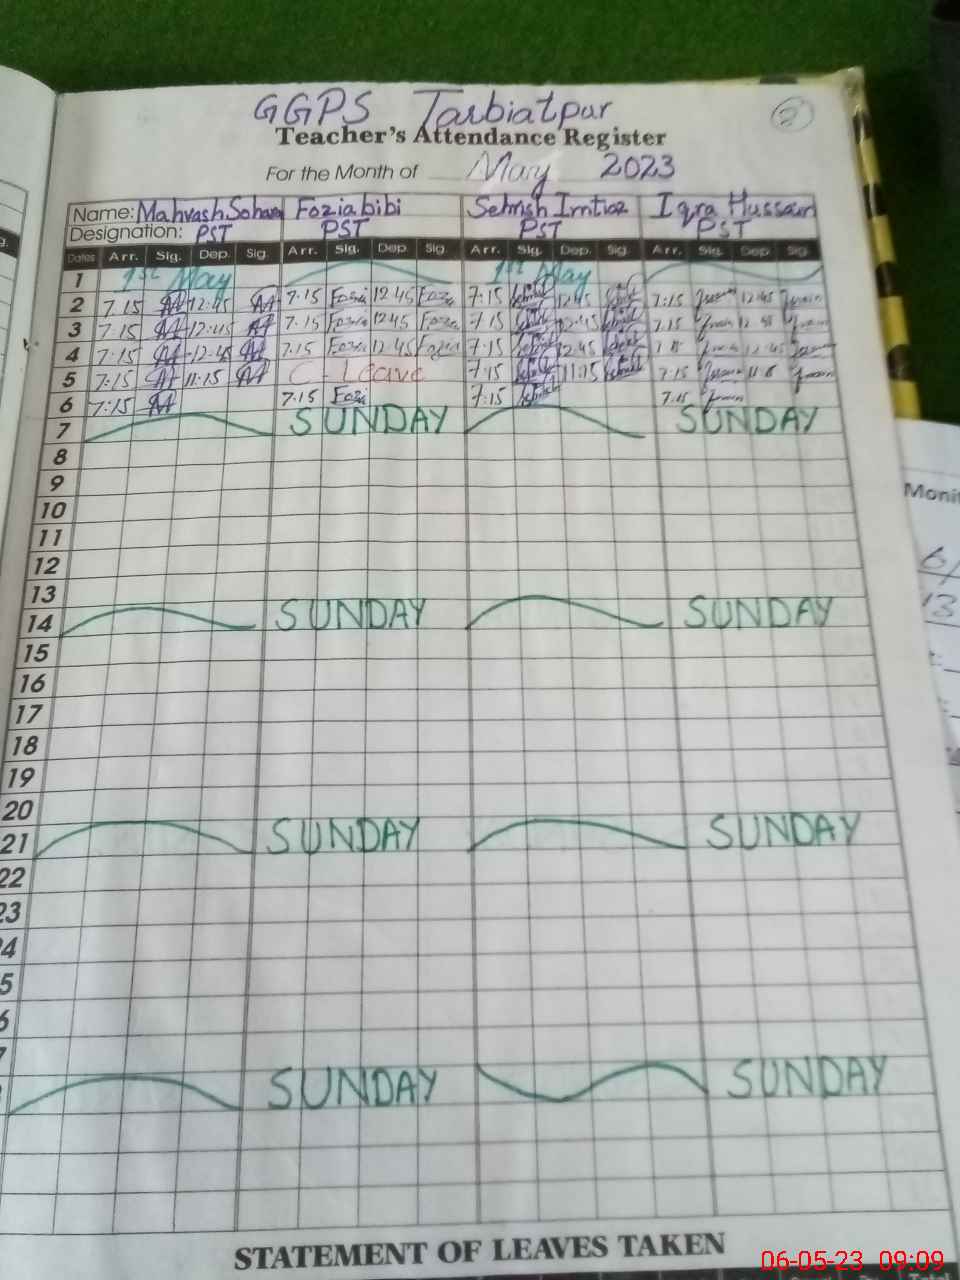 GGPS Tarbiatpur
2
Teacher's Attendance Register
For the Month of May 2023
Name: Mahvash Sohan Fozia bibi Sehrish Imtiaz Iqra Hussain
Designation: PST PST PST PST
Dates Arr. Sig. Dep. Sig. Arr. Sig. Dep. Sig. Arr. Sig. Dep. Sig. Arr. Sig. Dep. Sig.
1 1st May 1st May
2 7.15 12:45 7.15 Fozia 12 45 Fozia 7:15 12:45 7:15 12:45
3 7.15 12:45 7.15 Fozia 12.45 Fozia 7.15 12:45 7.15 12 45
4 7:15 12:45 7.15 Fozia 12.45 Fozia 7:15 12:45 12:45
5 7:15 11:15 C-Leave 7:15 11:15 7.15
6 7:15 7.15 Fozi 7:15 7.15
7 SUNDAY SUNDAY
8
9
10
11
12
13
14 SUNDAY SUNDAY
15
16
17
18
19
20
21 SUNDAY SUNDAY
22
23
4
5
6
7
SUNDAY SUNDAY
STATEMENT OF LEAVES TAKEN
Monit
6/
13
06-05-23 09:09